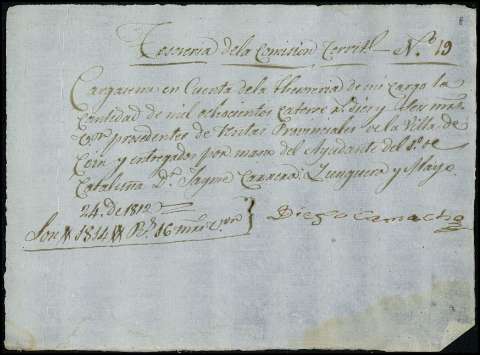 Tesoreria de la Comision Territl. N.º 19
Cargaseme en Cuenta de la thesoreria de mi cargo la
Cantidad de mil ochocientos catorce rs. diez y seis mrs.
von. procedentes de Rentas Provinciales de la Villa de
Coin y entregados por mano del Ayudante del de
Cataluña Dn. Jayme Carrera. Junquera y Mayo
24. de 1812
Son 1814 Rs. 16 mrs. von.
Diego Camacho